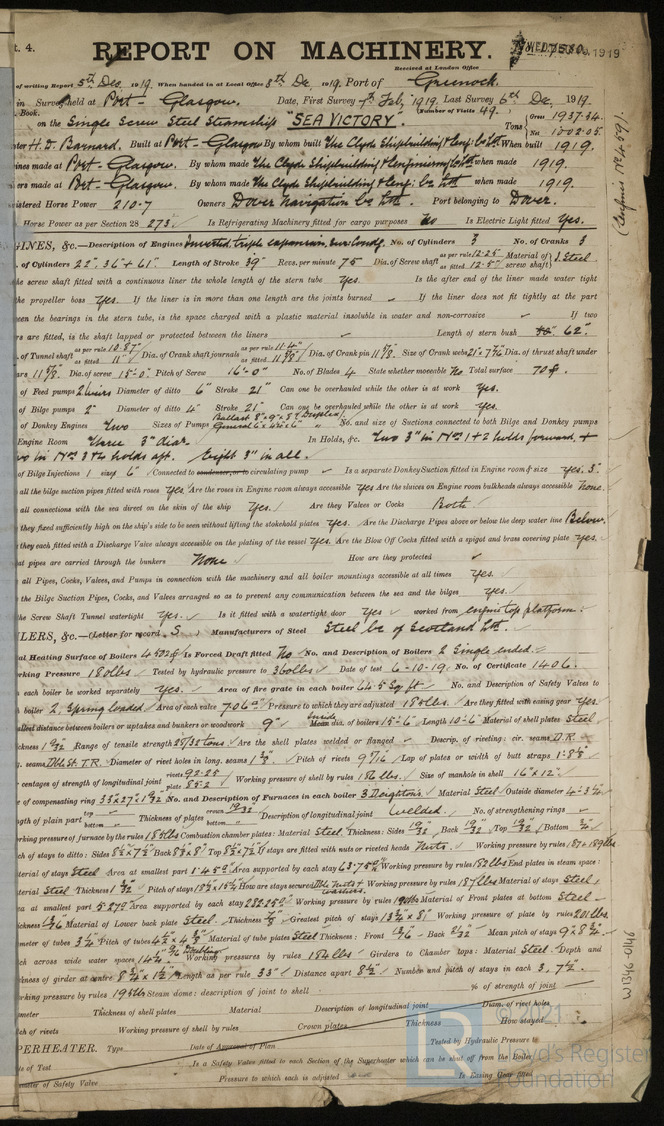 t. 4.
REPORT ON MACHINERY.
WED. 7580. 1919
Received at London Office
of writing Report 5th Dec 1919. When handed in at Local Office 8th De. 1919. Port of Greenock.
in Survey held at Port-Glasgow. Date, First Survey 7th Feb, 1919, Last Survey 6th De, 1919.
Book. (Number of Visits 49.
on the Single Screw Steel Steamship "SEA VICTORY" Tons { Gross 1937.34.
Net 1202.05.
ter H. D. Barnard. Built at Port-Glasgow By whom built The Clyde Shipbuilding & Eng. Co. Ltd. When built 1919.
ines made at Port-Glasgow. By whom made The Clyde Shipbuilding & Engineering Co Ltd when made 1919.
lers made at Port-Glasgow. By whom made The Clyde Shipbuilding & Eng: Co. Ltd when made 1919.
istered Horse Power 210.7 Owners Dover Navigation Co Ltd. Port belonging to Dover.
Horse Power as per Section 28 273. Is Refrigerating Machinery fitted for cargo purposes No Is Electric Light fitted Yes.
(Engines No 459).
GINES, &c.—Description of Engines Inverted, triple expansion, sur. condg. No. of Cylinders 3 No. of Cranks 3
of Cylinders 22", 36" & 61" Length of Stroke 39" Revs. per minute 75 Dia. of Screw shaft as per rule 12.25" as fitted 12.5" Material of screw shaft } I. Steel
he screw shaft fitted with a continuous liner the whole length of the stern tube Yes. Is the after end of the liner made water tight
the propeller boss Yes. If the liner is in more than one length are the joints burned — If the liner does not fit tightly at the part
een the bearings in the stern tube, is the space charged with a plastic material insoluble in water and non-corrosive — If two
rs are fitted, is the shaft lapped or protected between the liners Length of stern bush 62"
. of Tunnel shaft as per rule 10.87" as fitted 11" Dia. of Crank shaft journals as per rule 11.4" as fitted 11 7/8" Dia. of Crank pin 11 7/8" Size of Crank webs Dia. of thrust shaft under
ars 11 7/8" Dia. of screw 15'-0" Pitch of Screw 16'-0" No. of Blades 4 State whether moveable No Total surface 70
of Feed pumps 2 Weirs Diameter of ditto 6" Stroke 21" Can one be overhauled while the other is at work Yes.
of Bilge pumps 2" Diameter of ditto 4" Stroke 21" Can one be overhauled while the other is at work Yes.
of Donkey Engines Two Sizes of Pumps No. and size of Suctions connected to both Bilge and Donkey pumps
Engine Room Three 3" diar. In Holds, &c. Two 3" in Nos 1 + 2 holds forward, +
wo in Nos 3 & 4 holds aft. Eight 3" in all.
of Bilge Injections 1 sizes 6" Connected to condenser, or to circulating pump Is a separate Donkey Suction fitted in Engine room & size Yes. 3"
all the bilge suction pipes fitted with roses Yes Are the roses in Engine room always accessible Yes Are the sluices on Engine room bulkheads always accessible None.
all connections with the sea direct on the skin of the ship Yes. Are they Valves or Cocks Both
they fixed sufficiently high on the ship's side to be seen without lifting the stokehold plates Yes. Are the Discharge Pipes above or below the deep water line Below.
they each fitted with a Discharge Valve always accessible on the plating of the vessel Yes. Are the Blow Off Cocks fitted with a spigot and brass covering plate Yes.
at pipes are carried through the bunkers None How are they protected
all Pipes, Cocks, Valves, and Pumps in connection with the machinery and all boiler mountings accessible at all times Yes.
the Bilge Suction Pipes, Cocks, and Valves arranged so as to prevent any communication between the sea and the bilges Yes.
the Screw Shaft Tunnel watertight Yes. Is it fitted with a watertight door Yes worked from engine top platform.
LERS, &c.—(Letter for record S.) Manufacturers of Steel Steel Co of Scotland Ltd.
al Heating Surface of Boilers Is Forced Draft fitted No No. and Description of Boilers 2 Single ended.
rking Pressure 180lbs Tested by hydraulic pressure to 360lbs Date of test 6-10-19. No. of Certificate 1406.
n each boiler be worked separately Yes. Area of fire grate in each boiler 64.5 Sq ft No. and Description of Safety Valves to
boiler 2. Spring loaded Area of each valve 7.06 Pressure to which they are adjusted 180lbs. Are they fitted with easing gear Yes
allest distance between boilers or uptakes and bunkers or woodwork 9" Inside Mean dia. of boilers 15'-6" Length 10'-6" Material of shell plates Steel
ckness 1 9/32 Range of tensile strength Are the shell plates welded or flanged Descrip. of riveting: cir. seams D.R.
g. seams Dbl. St. T.R. Diameter of rivet holes in long. seams Pitch of rivets 9 7/16 Lap of plates or width of butt straps
centages of strength of longitudinal joint rivets 92.25 plate 85.2 Working pressure of shell by rules 186lbs. Size of manhole in shell 16" x 12"
e of compensating ring No. and Description of Furnaces in each boiler 3 Deightons Material Steel Outside diameter
gth of plain part top bottom Thickness of plates crown bottom 19/32 Description of longitudinal joint Welded. No. of strengthening rings
rking pressure of furnace by the rules 185lbs Combustion chamber plates: Material Steel Thickness: Sides 19/32 Back 19/32 Top 19/32 Bottom 3/4
ch of stays to ditto: Sides Back Top If stays are fitted with nuts or riveted heads Nuts. Working pressure by rules
terial of stays Steel Area at smallest part Area supported by each stay Working pressure by rules 182lbs End plates in steam space:
terial Steel Thickness Pitch of stays How are stays secured Dbl. Nuts + washers. Working pressure by rules 187lbs Material of stays Steel,
ea at smallest part Area supported by each stay Working pressure by rules Material of Front plates at bottom Steel
ickness 13/16 Material of Lower back plate Steel. Thickness 7/8 Greatest pitch of stays Working pressure of plate by rules 201lbs.
meter of tubes 3 1/4 Pitch of tubes Material of tube plates Steel Thickness: Front 13/16 Back Mean pitch of stays
ch across wide water spaces Working pressures by rules 184lbs Girders to Chamber tops: Material Steel. Depth and
ckness of girder at centre Length as per rule 33" Distance apart 8 1/2 Number and pitch of stays in each 3, 7 1/2".
rking pressure by rules 195lbs Steam dome: description of joint to shell % of strength of joint
meter Thickness of shell plates Material Description of longitudinal joint Diam. of rivet holes
ch of rivets Working pressure of shell by rules Crown plates Thickness How stayed
PERHEATER. Type Date of Approval of Plan Tested by Hydraulic Pressure to
te of Test Is a Safety Valve fitted to each Section of the Superheater which can be shut off from the Boiler
meter of Safety Valve Pressure to which each is adjusted Is Easing Gear fitted
W1346-0146
© 2021
Lloyd's Register
Foundation